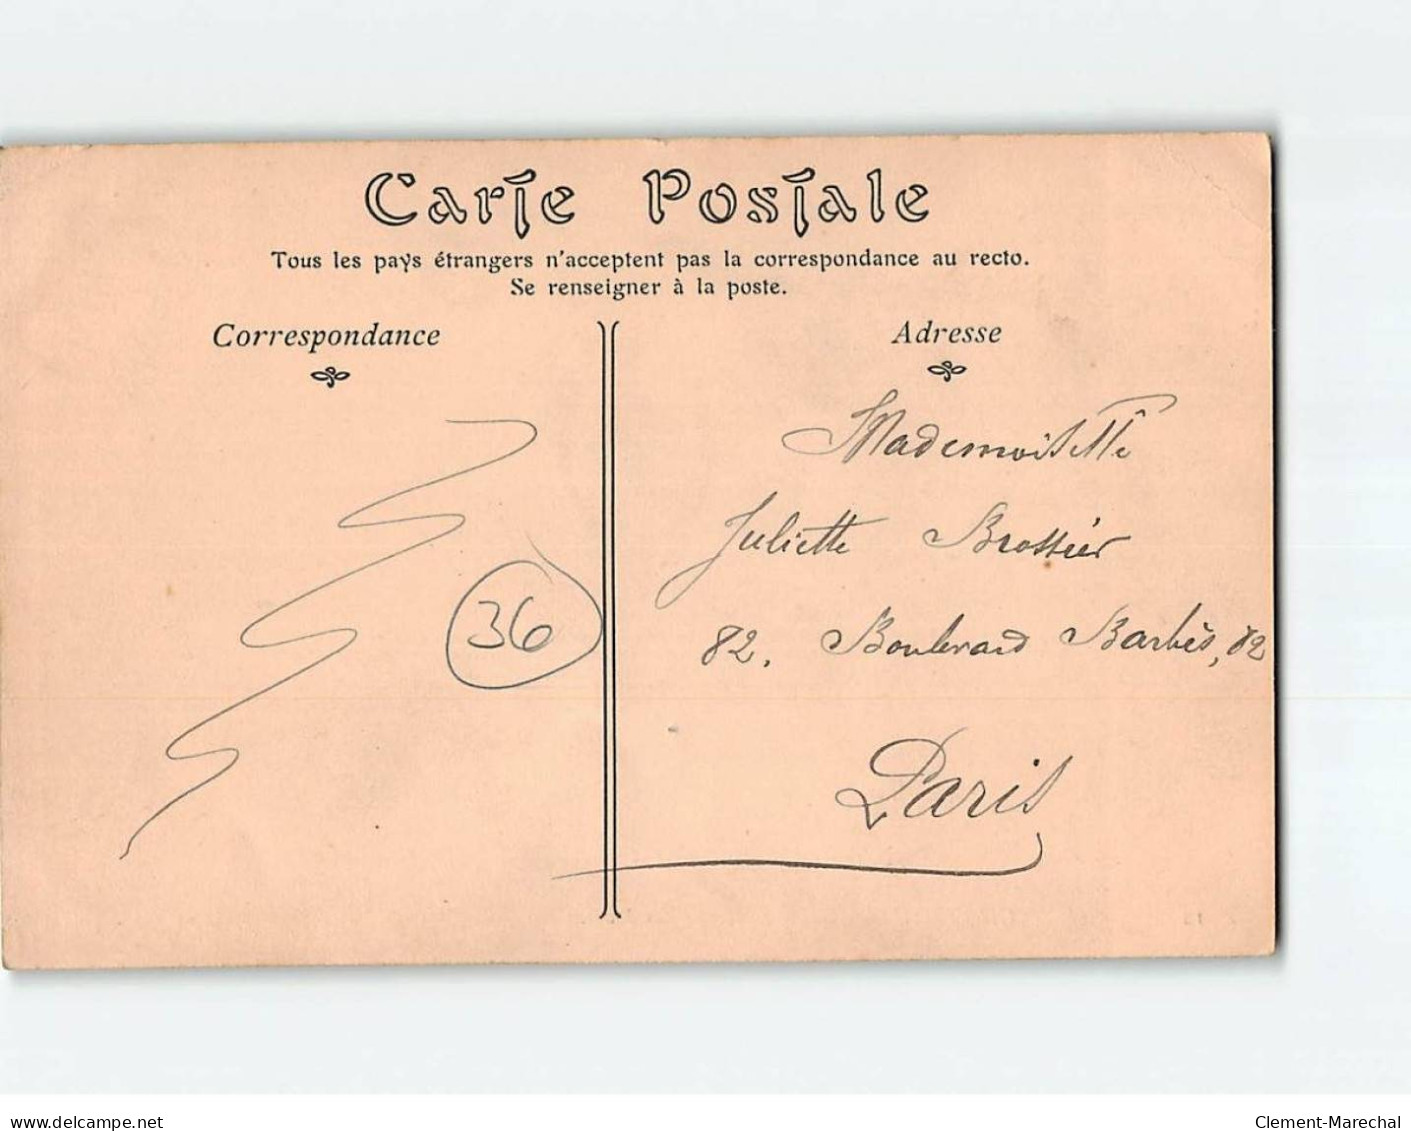 Carte Postale
Tous les pays étrangers n'acceptent pas la correspondance au recto.
Se renseigner à la poste.
Correspondance
Adresse
Mademoiselle
Juliette Brossier
36
82, Boulevard Barbès, 82
Paris
delcampe.net
Clement-Marechal